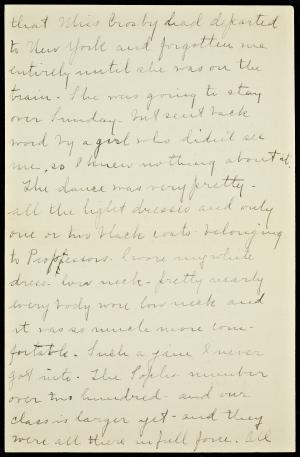 that Miss Crosby had departed
to New York and forgotten me
entirely until she was on the
train. She was going to stay
over Sunday but sent back
word by a girl who didn't see
me, so I knew nothing about it.
The dance was very pretty -
all the light dresses and only
one or two black coats - belonging
to Proffessors. I wore my white
dress - low neck - pretty nearly
everybody wore low neck and
it was so much more com-
fortable. Such a jam I never
got into. The Sophs number
over two hundred - and our
class is larger yet - and they
were all there in full force. All